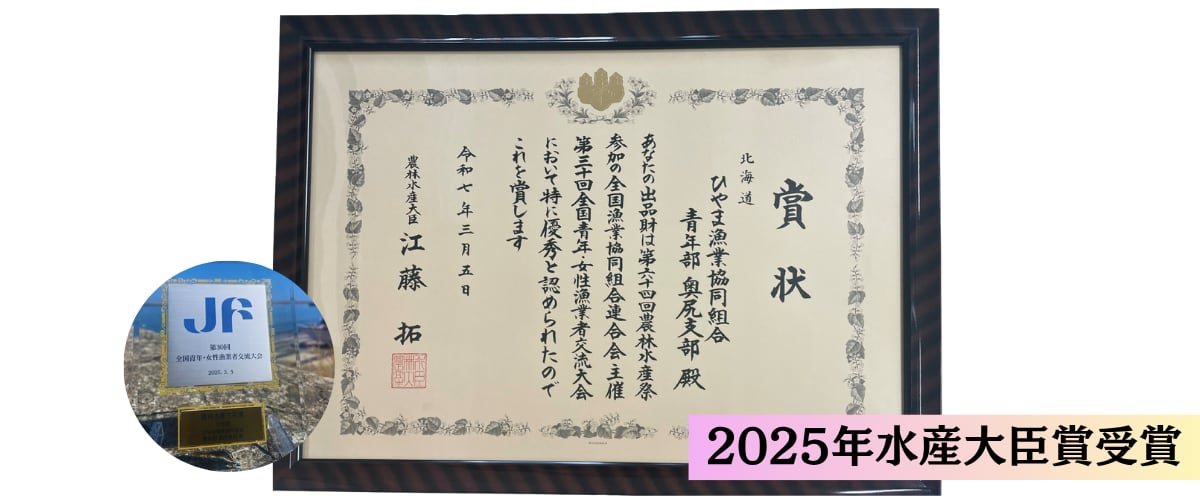 賞状
北海道
ひやま漁業協同組合
青年部 奥尻支部 殿
あなたの出品財は第六十四回農林水産祭
参加の全国漁業協同組合連合会主催
第三十回全国青年・女性漁業者交流大会
において特に優秀と認められたので
これを賞します
令和七年三月五日
農林水産大臣 江藤 拓
JF
第30回
全国青年・女性漁業者交流大会
2025.3.5
2025年水産大臣賞受賞